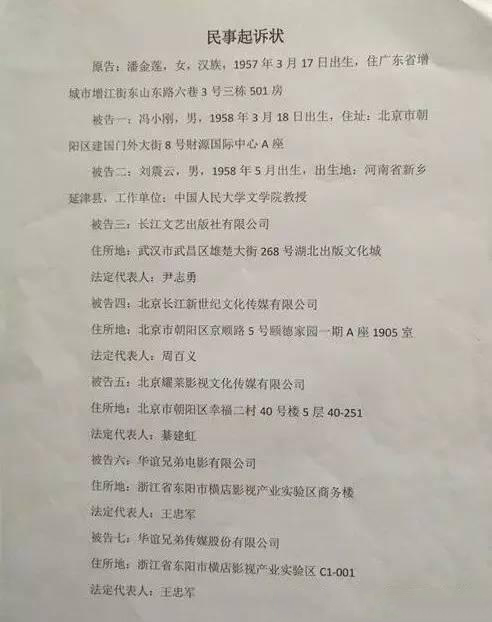 民事起诉状
原告：潘金莲，女，汉族，1957年3月17日出生，住广东省增
城市增江街东山东路六巷3号三栋501房
被告一：冯小刚，男，1958年3月18日出生，住址：北京市朝
阳区建国门外大街8号财源国际中心A座
被告二：刘震云，男，1958年5月出生，出生地：河南省新乡
延津县，工作单位：中国人民大学文学院教授
被告三：长江文艺出版社有限公司
住所地：武汉市武昌区雄楚大街268号湖北出版文化城
法定代表人：尹志勇
被告四：北京长江新世纪文化传媒有限公司
住所地：北京市朝阳区京顺路5号颐德家园一期A座1905室
法定代表人：周百义
被告五：北京耀莱影视文化传媒有限公司
住所地：北京市朝阳区幸福二村40号楼5层40-251
法定代表人：綦建虹
被告六：华谊兄弟电影有限公司
住所地：浙江省东阳市横店影视产业实验区商务楼
法定代表人：王忠军
被告七：华谊兄弟传媒股份有限公司
住所地：浙江省东阳市横店影视产业实验区C1-001
法定代表人：王忠军